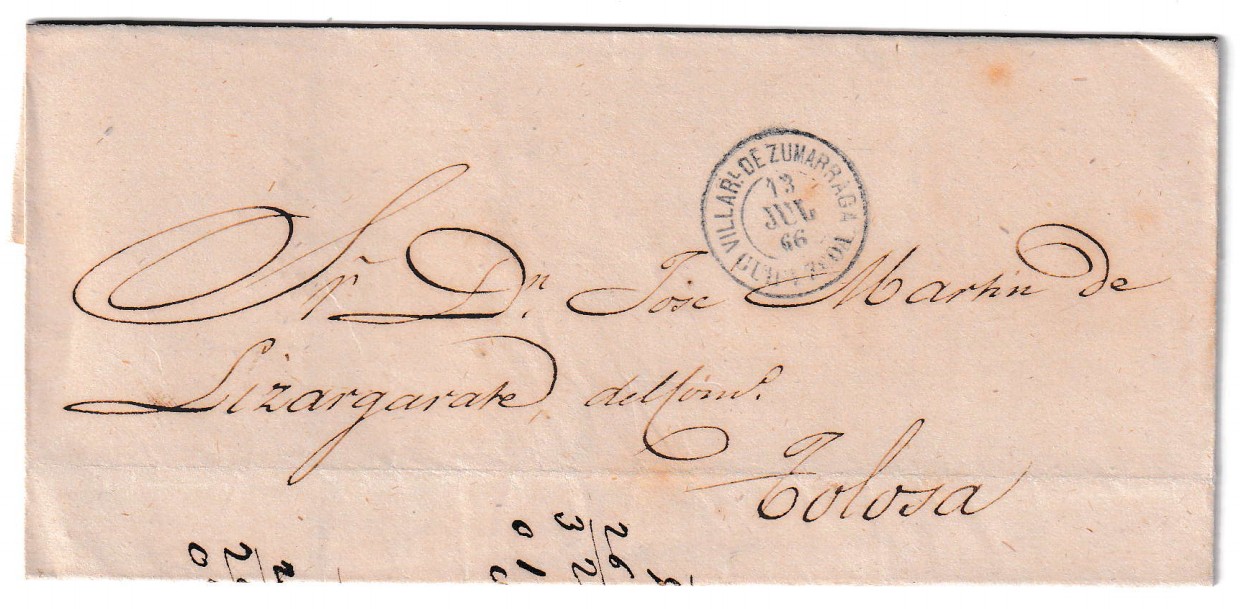 VILLARL DE ZUMARRAGA
13
JUL
66
GUIPUZCOA
Sr. Dn. José Martin de
Lizargarate del Como.
Tolosa
26
3 2
0 1 0
2
0